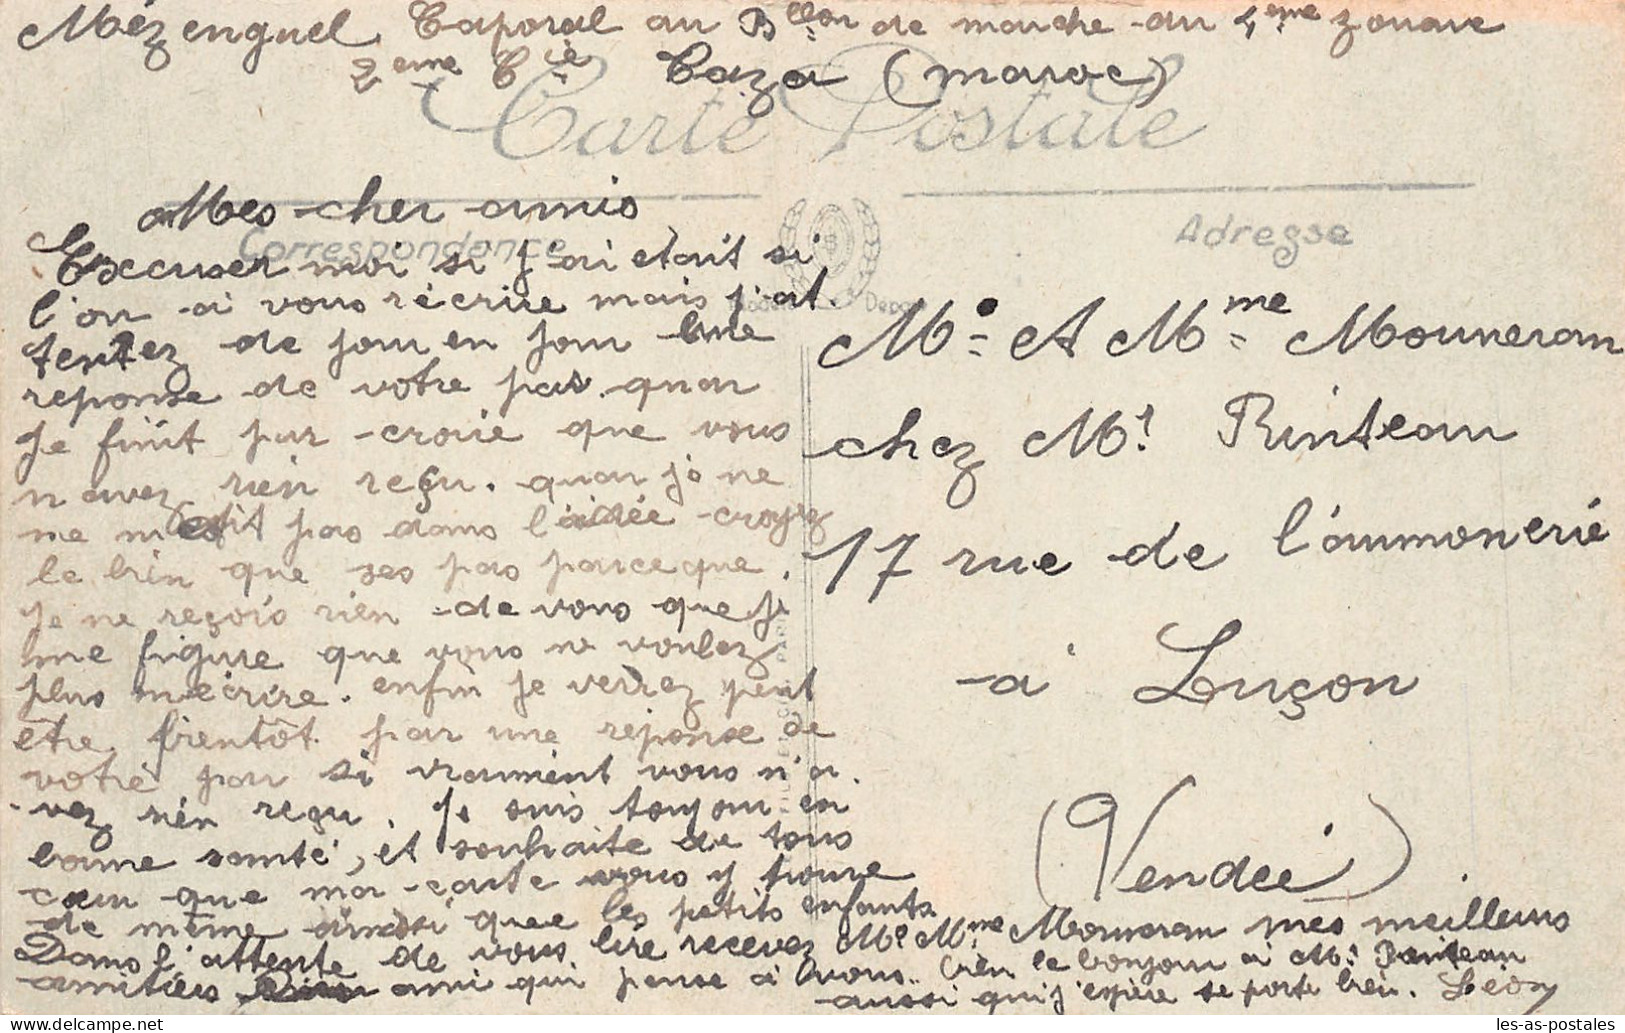 Mézenguel Caporal au Bllon de marche du 4eme zouave
2eme Cie Caza (maroc)
Carte Postale
Mes cher amis
Correspondance
Adresse
Excuser moi si j'ai etait si
l'on a vous récrire mais j'at.
tentez de jour en jour une
reponse de votre par quar
Je finit par croire que vous
navez rien reçu. quar je ne
me met pas dans l'aidée croyez
le bien que ses pas parceque
Je ne reçois rien de vous que je
me figure que vous ne voulez
plus m'ecrire. enfin je verrez peut
etre bientôt par une reponse de
votre par si vraiment vous n'a.
vez rien reçu. Je suis toujour en
bonne santé, et souhaite de tous
cœur que ma carte vous y trouve
de même ainssi quee les petits enfants
Dans l'attente de vous lire recevez Mr Mme Mouneran mes meilleurs
amitiés ami qui pense a vous. bien le bonjour a Mr Rinteau
aussi qui j'espère se porte bien. Léon
Mr. et Mme Mouneran
chez Mr Rinteau
17 rue de l'aumonerie
a Luçon
(Vendeé)
les-as-postales - delcampe.net